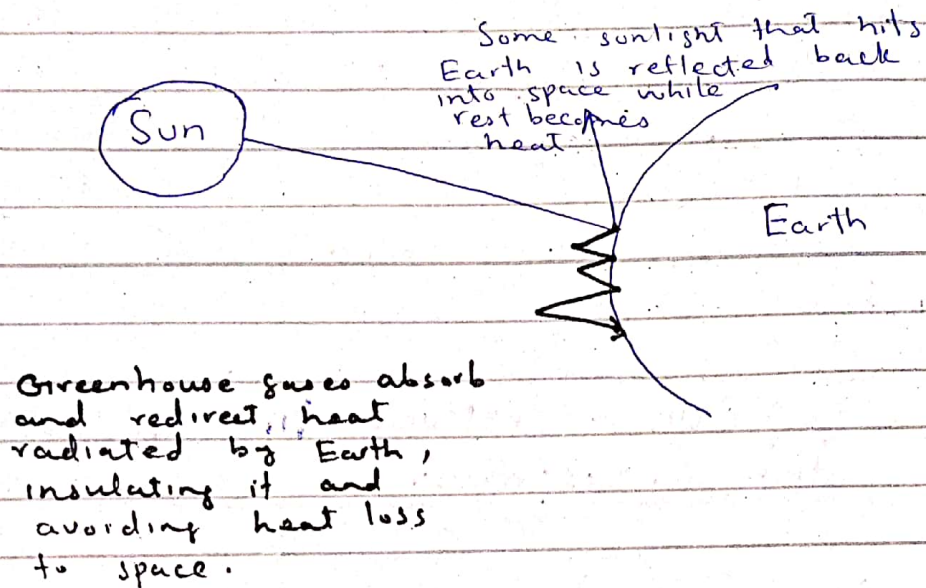 Some sunlight that hits
Earth is reflected back
into space while
rest becomes
heat
Sun
Earth
Greenhouse gases absorb
and redirect heat
radiated by Earth,
insulating it and
avoiding heat loss
to space.